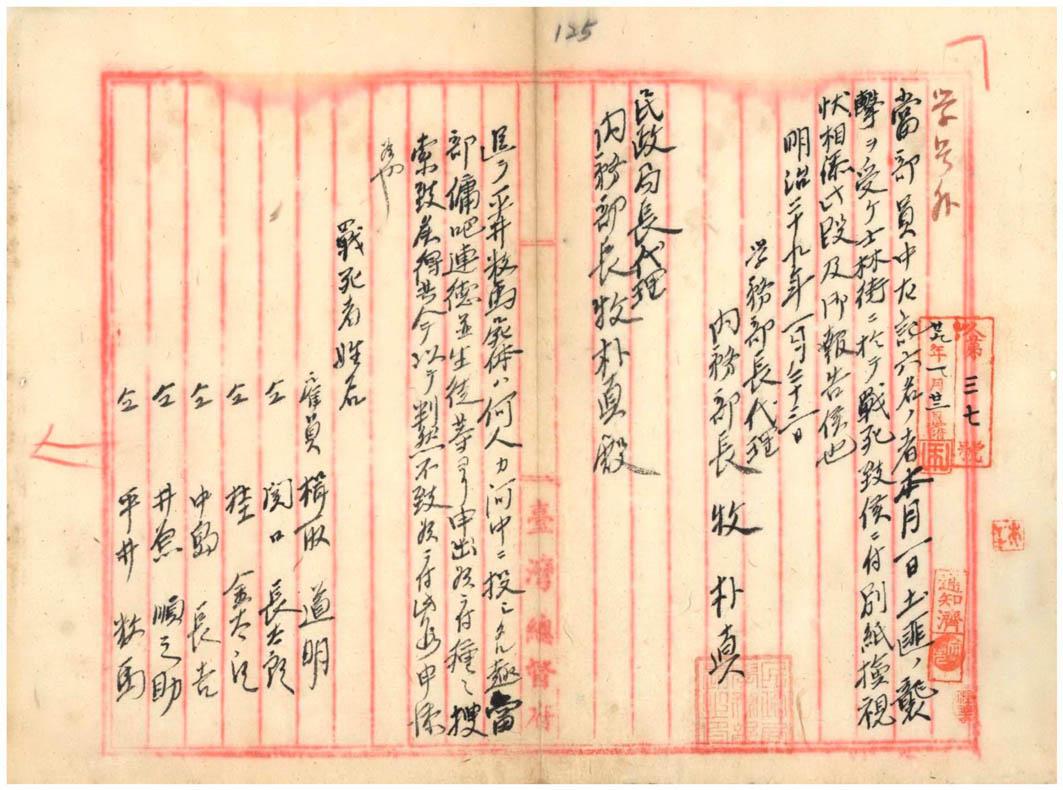 125
学号外
第三七號
廿九年一月廿三日
通知濟
當部員中左記六名ノ者本月一日土匪ノ襲
擊ヲ受ケ士林街ニ於テ戦死致候ニ付別紙撿視
状相添此段及御報告候也
明治二十九年一月二十三日
学務部長代理
内務部長 牧 朴眞
民政局長代理
内務部長牧朴眞殿
追テ平井数馬死体ハ何人カ河中ニ投シタル趣當
部傭吧連德並生徒等ヨリ申出候ニ付種々搜
索致
得共今以テ判然不致候ニ付此段申添
戰死者姓名
雇員 楫取 道明
仝 関口 長太郎
仝 桂 金太郎
仝 中島 長吉
仝 井原 順之助
仝 平井 数馬
臺灣總督府